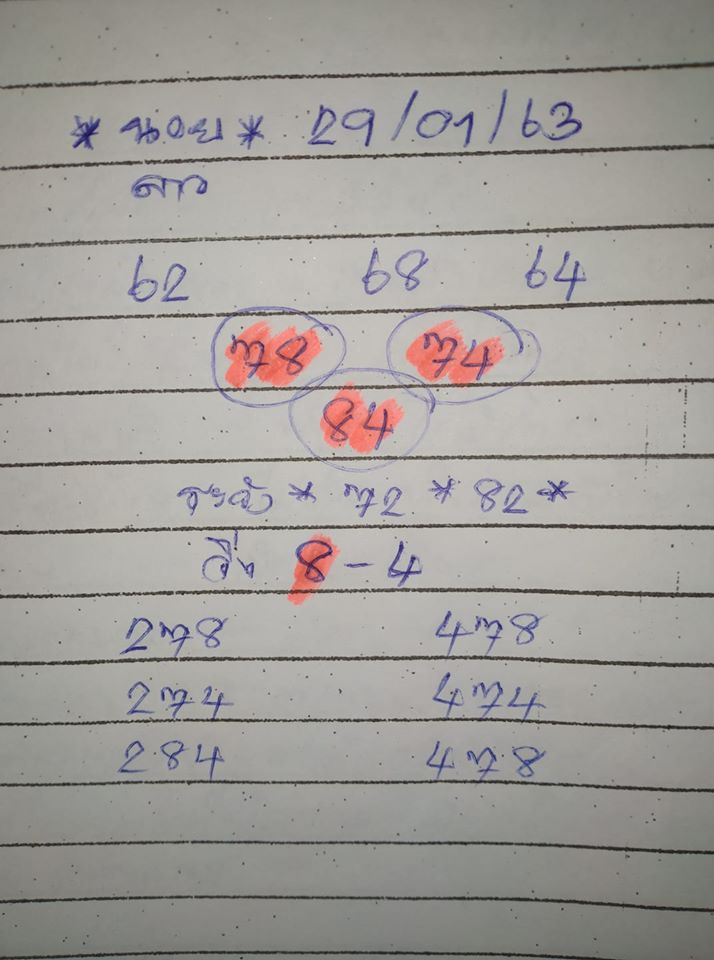 *นอย* 29/01/63
ลาว
62 68 64
78 74
84
ระวัง * 72 * 82 *
วิ่ง 8-4
278 478
274 474
284 478